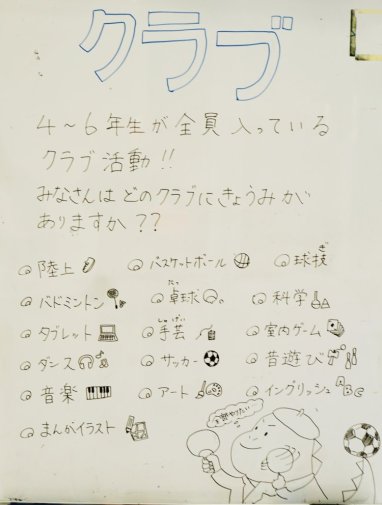 クラブ
4～6年生が全員入っている
クラブ活動!!
みなさんはどのクラブにきょうみが
ありますか??
陸上 バスケットボール 球技
バドミントン 卓球 科学
タブレット 手芸 室内ゲーム
ダンス サッカー 昔遊び
音楽 アート イングリッシュ ABC
まんがイラスト
全部やりたい